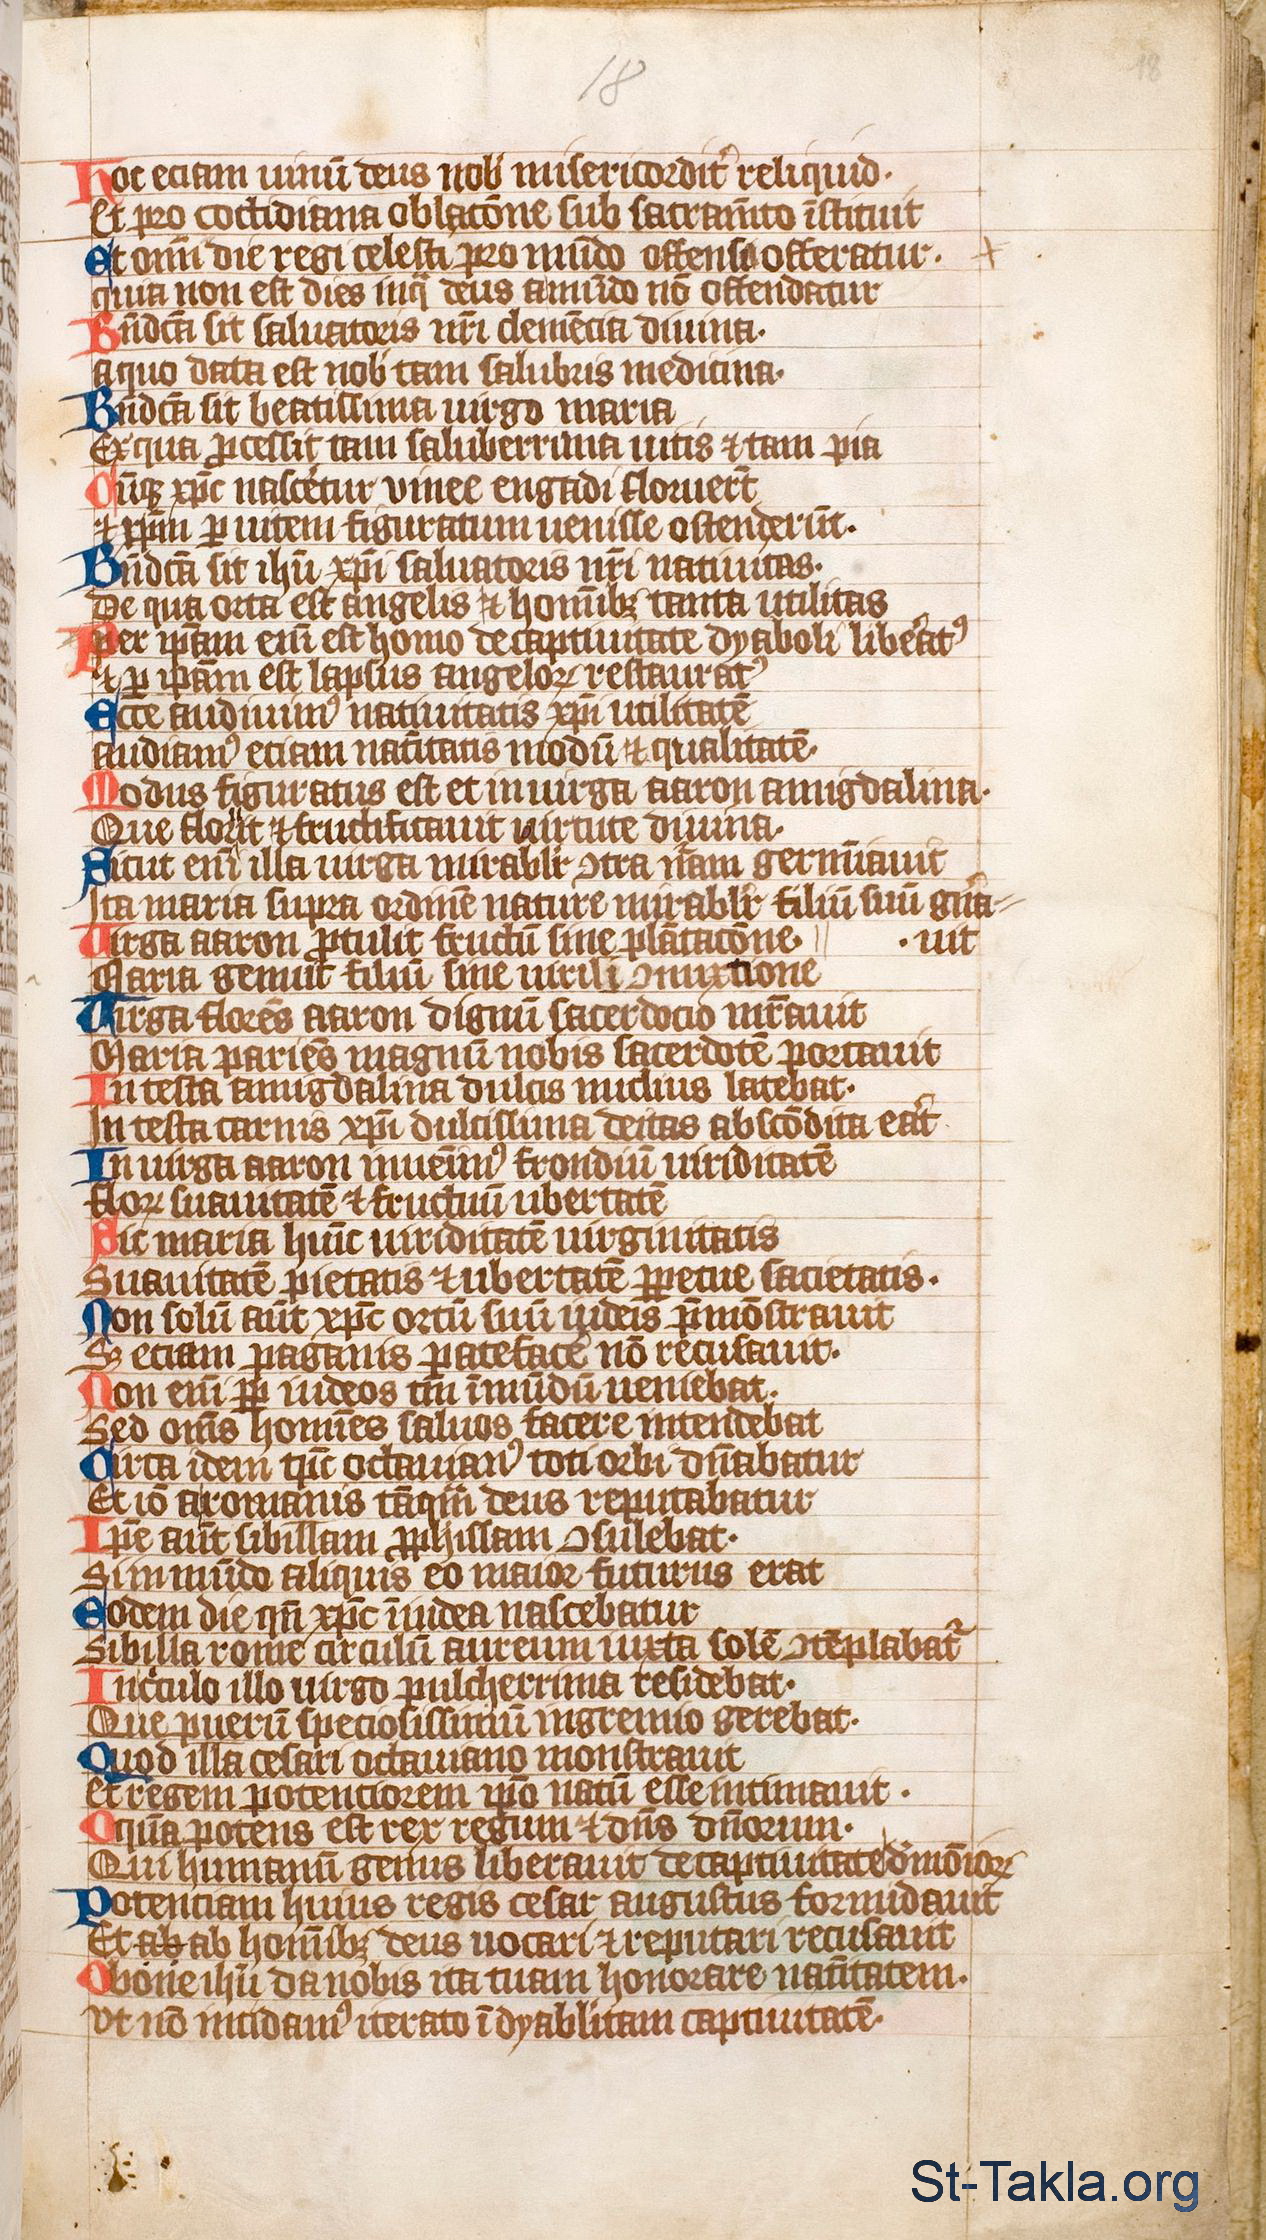 18
18
Hoc eciam uinū deus nob misericordit͛ reliquid·
Et pro cottidiana oblacōne sub sacramēto īstituit
Et omī die regi celesti pro mūdo offenso offeratur· +
quia non est dies inq̄ deus a mūdo nō offendatur
Bn̄dcā sit saluatoris nr̄i clemēcia diuina·
a quo data est nob tam salubris medicina·
Bn̄dcā sit beatissima uirgo maria
Ex qua ꝓcessit tam saluberrima uitis ⁊ tam pia
Cūqꝫ xp̄c nascetur vinee engadi floruert̄
⁊ xp̄m ꝑ uitem figuratum uenisse ostenderūt·
Bn̄dcā sit ihū xp̄i saluatoris nr̄i natiuitas·
De qua orta est angelis ⁊ homībꝫ tanta utilitas
Per ip̄am enī est homo de captiuitate dyaboli liberatꝰ
⁊ ꝑ ip̄am est lapsus angeloꝝ restauratꝰ
Ecce audiuimꝰ natiuitatis xp̄i utilitatē
audiamꝰ eciam nat̄itatis modū ⁊ qualitatē·
Modus figuratus est et in uirga aaron amigdalina·
Que floruit ⁊ fructificauit uirtute diuina·
Sicut enī illa uirga mirablr̄ ꝯtra nām germīauit
Ita maria supra ordinē nature mirablr̄ filiū suū gn̄a-
Uirga aaron ꝓtulit fructū sine plātacōne· ·uit
Maria genuit filiū sine uirili ꝯmixtione
Uirga florēs aaron dignū sacerdocio mr̄auit
Maria pariēs magnū nobis sacerdotē portauit
In testa amigdalina dulcis nucleus latebat·
In testa carnis xp̄i dulcissima deitas abscōdita erat
In uirga aaron inuenimꝰ frondiū uiriditatē
floꝝ suauitatē ⁊ fructuū ubertatē
Sic maria huīc uiriditatē uirginitatis
Suauitatē pietatis ⁊ ubertatē ꝑpetue sacietatis·
Non solū aūt xp̄c ortū suū iudeis p̄mōstrauit
Sꝫ eciam paganis pateface͛ nō recusauit·
Non enī ꝓp̄ iudeos tm̄ ī mūdū ueniebat·
Sed om̄s homīes saluos facere intendebat
Circa idem tp̄c octauianꝰ toti orbi dn̄abatur
Et iō a romanis tāqm̄ deus reputabatur
Ip̄e aūt sibillam ꝓphissam ꝯsulebat·
Si in mūdo aliquis eo maior futurus erat
Eodem die qn̄ xp̄c ī iudea nascebatur
Sibilla rome circulū aureum iuxta solē ꝯtēplabat͛
In circulo illo uirgo pulcherrima residebat·
Que puerū speciosissimū in gremio gerebat·
Quod illa cesari octauiano monstrauit
et regem potenciorem ip̄o natū esse intimauit·
O qūa potens est rex regum ⁊ dn̄s dn̄orum·
Qui humanū genus liberauit de captiuitate demōioꝝ
Potenciam huius regis cesar augustus formidauit
Et ab ab homībꝫ deus uocari ⁊ reputari recusauit
O bone ihū da nobis ita tuam honorare nat̄itatem·
Vt nō incidamꝰ iterato ī dyablicam captiuitatē·
St-Takla.org